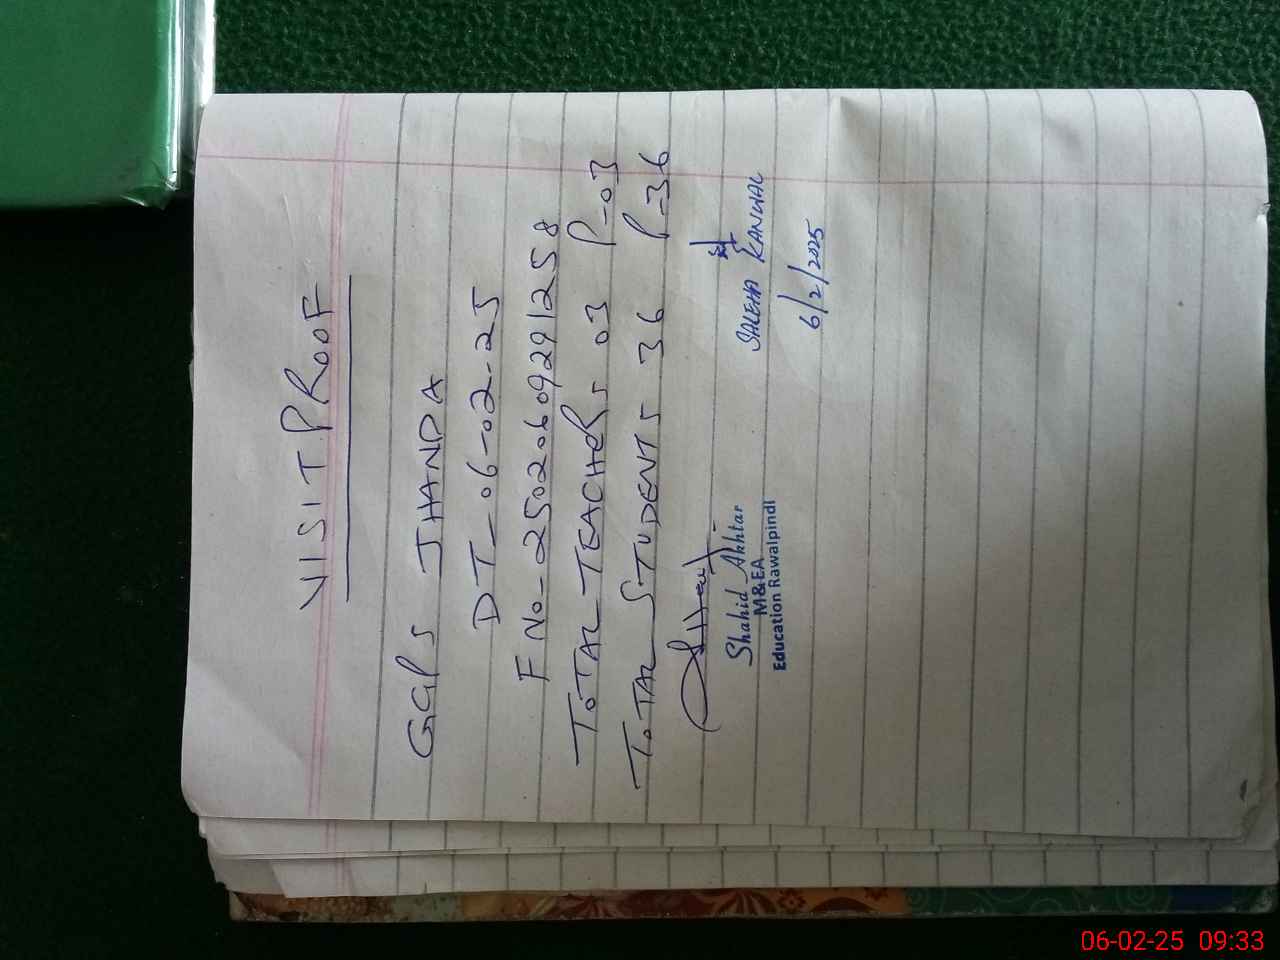 VISIT PROOF
GGPS JHANDA
DT-06-02-25
F No-2502060929 1258
TOTAL TEACHeRS 03 P-03
TOTAL STUDENTS 36 P-36
Shahid Akhtar
M&EA
Education Rawalpindi
SALEHA KANWAL
6/2/2025
06-02-25 09:33